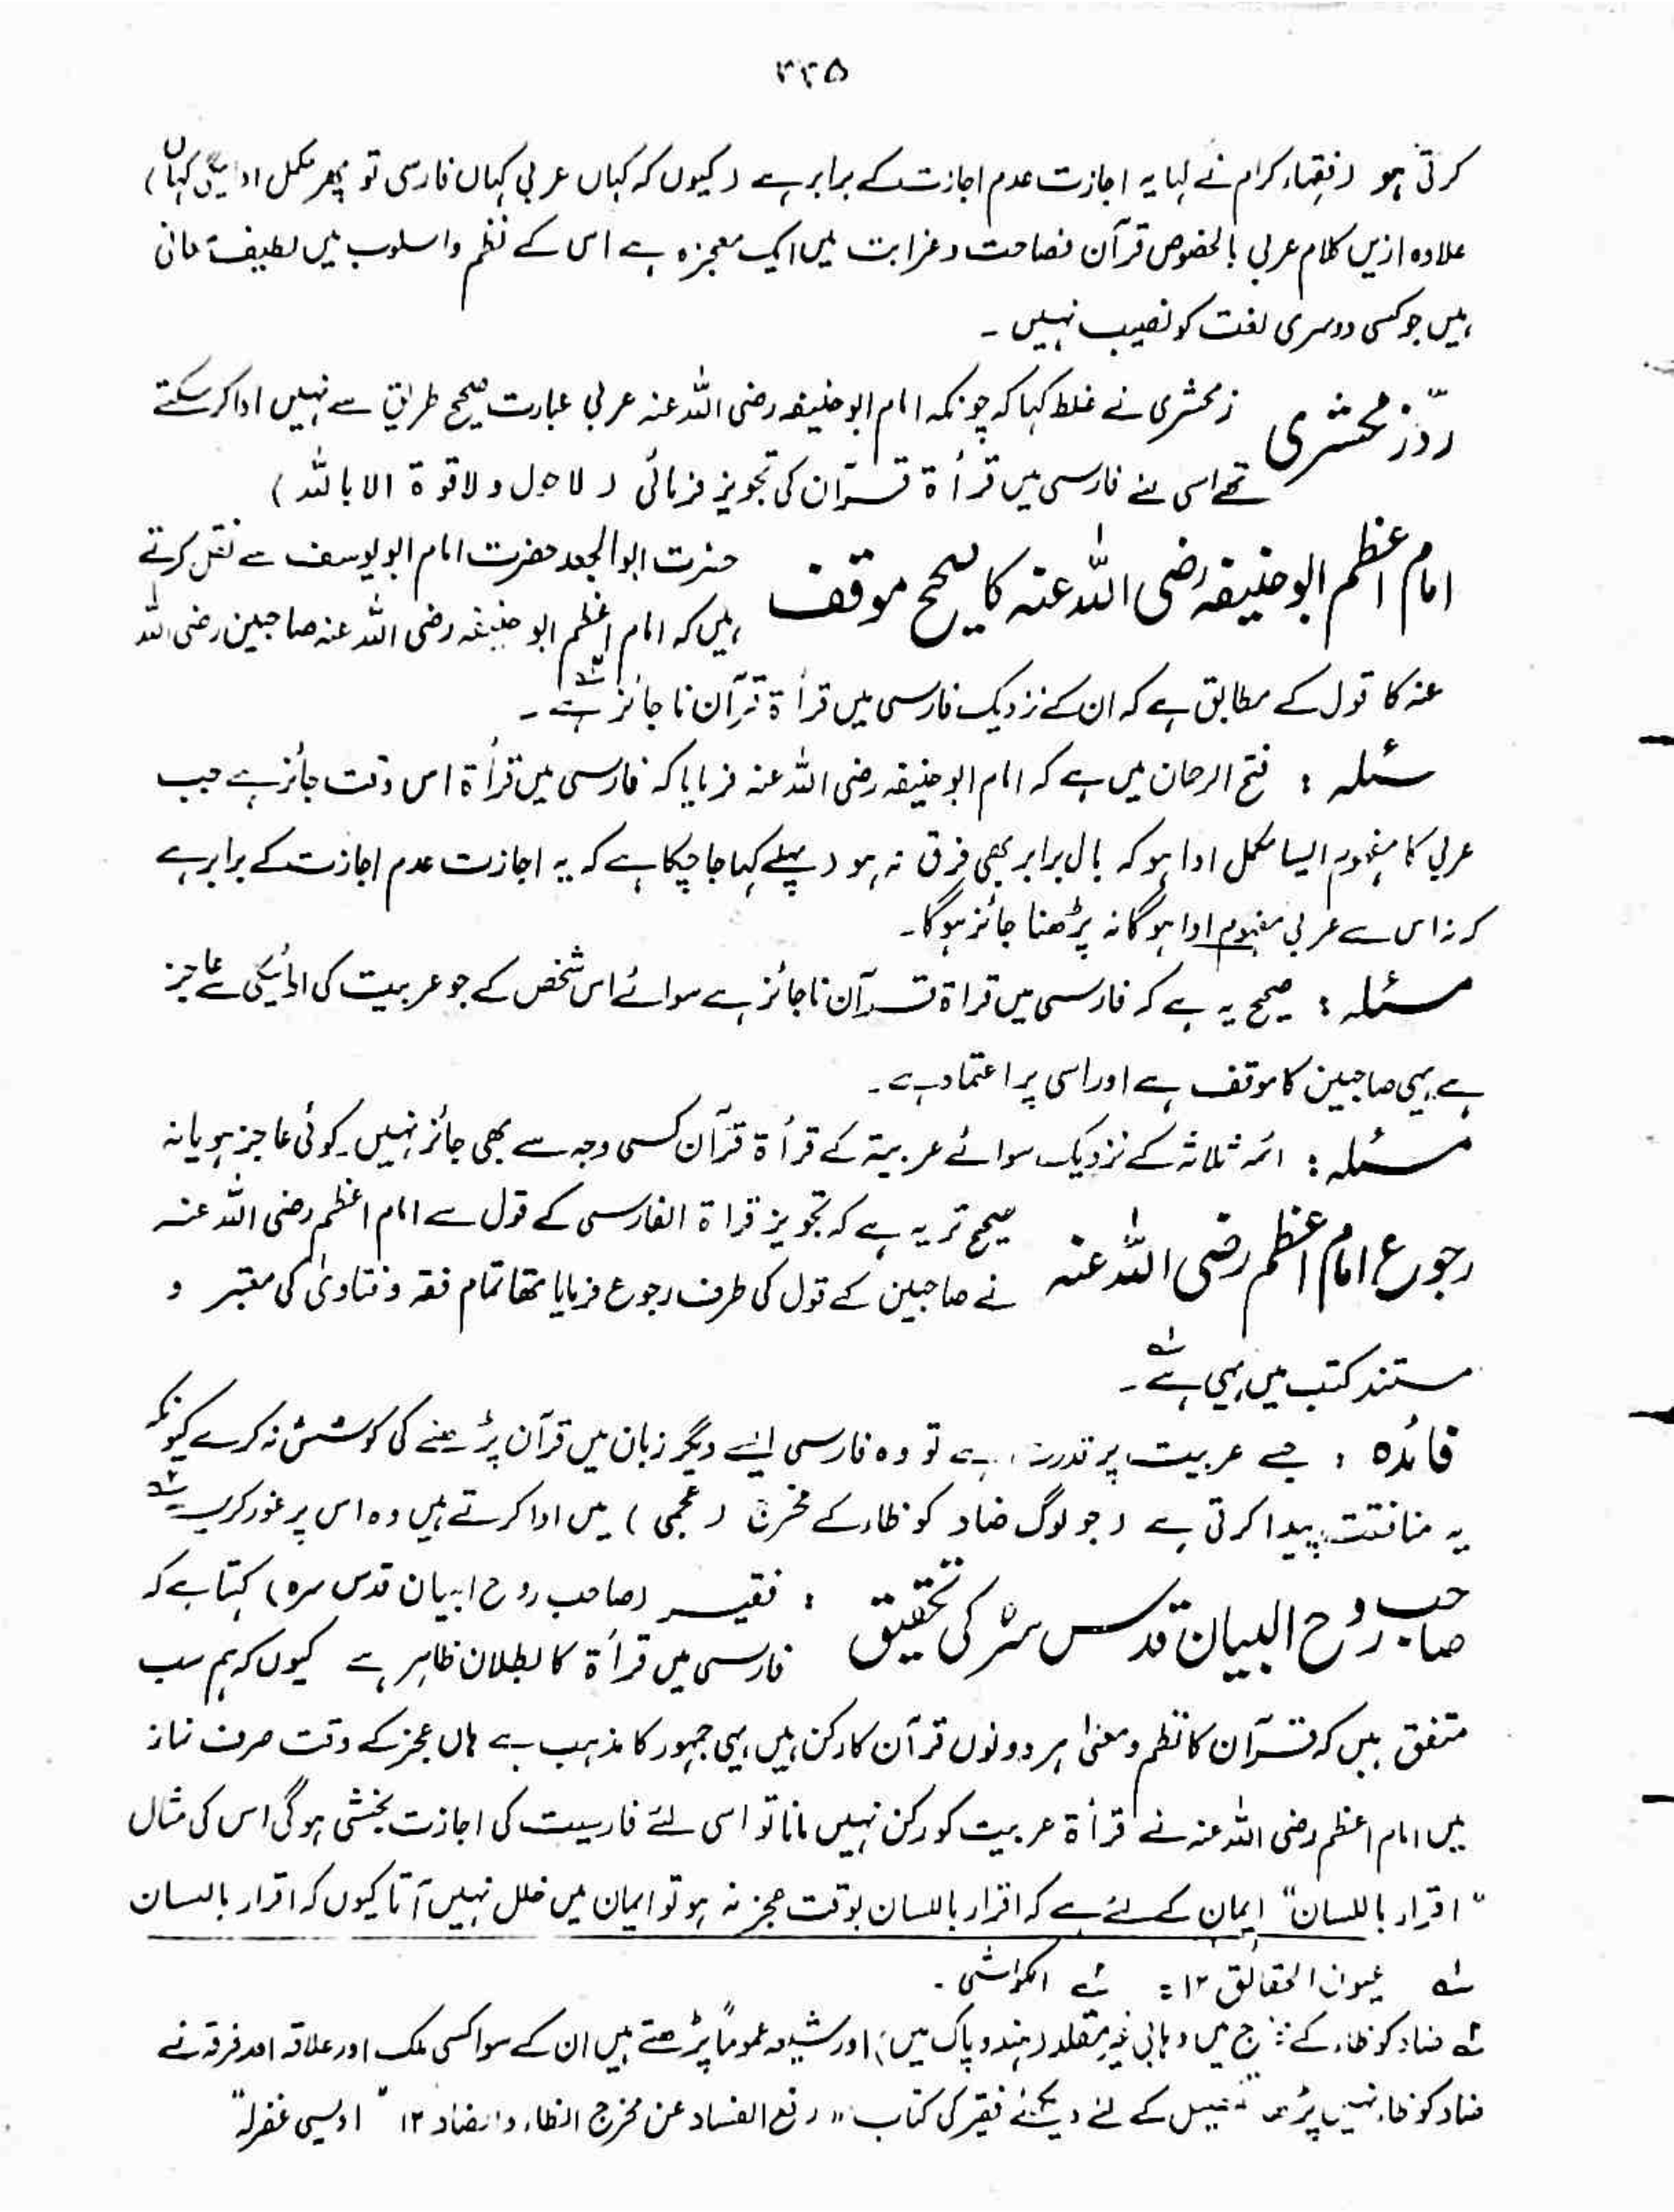 ۳۳۵
کرتی ہو (فقہاء کرام نے کہا یہ اجازت عدم اجازت کے برابر ہے (کیوں کہ کہاں عربی کہاں فارسی تو پھر مکمل ادائیگی کہاں)
علاوہ ازیں کلام عربی بالخصوص قرآن فصاحت و غرابت میں ایک معجزہ ہے اس کے نظم واسلوب میں لطیف معانی
ہیں جو کسی دوسری لغت کو نصیب نہیں ۔
ردّ زمحشری
زمحشری نے غلط کہا کہ چونکہ امام ابوحنیفہ رضی اللہ عنہ عربی عبارت صحیح طریق سے نہیں ادا کر سکتے
تھے اسی لئے فارسی میں قرأۃ قرآن کی تجویز فرمائی (لاحول ولاقوۃ الا باللہ)
امام اعظم ابوحنیفہ رضی اللہ عنہ کا صحیح موقف
حضرت ابوالجعد حضرت امام ابویوسف سے نقل کرتے
ہیں کہ امام اعظم ابوحنیفہ رضی اللہ عنہ صاحبین رضی اللہ
عنہ کا قول کے مطابق ہے کہ ان کے نزدیک فارسی میں قرأۃ قرآن ناجائز ہے ۔
سئلہ : فتح الرحمان میں ہے کہ امام ابوحنیفہ رضی اللہ عنہ فرمایا کہ فارسی میں قرأۃ اس وقت جائز ہے جب
عربی کا مفہوم ایسا مکمل ادا ہو کہ بال برابر بھی فرق نہ ہو (پہلے کہا جا چکا ہے کہ یہ اجازت عدم اجازت کے برابر ہے
کہ نہ اس سے عربی مفہوم ادا ہوگا نہ پڑھنا جائز ہوگا۔
مسئلہ : صحیح یہ ہے کہ فارسی میں قراۃ قرآن ناجائز ہے سوائے اس شخص کے جو عربیت کی ادائیگی سے عاجز
ہے یہی صاحبین کا موقف ہے اور اسی پر اعتماد ہے۔
مسئلہ : ائمہ ثلاثہ کے نزدیک سوائے عربیۃ کے قرأۃ قرآن کسی وجہ سے بھی جائز نہیں۔ کوئی عاجز ہو یا نہ
رجوع امام اعظم رضی اللہ عنہ
صحیح تر یہ ہے کہ تجویز قراۃ الفارسی کے قول سے امام اعظم رضی اللہ عنہ
نے صاحبین کے قول کی طرف رجوع فرمایا تھا تمام فقہ و فتاویٰ کی معتبر و
مستند کتب میں یہی ہے ۱؎ ۔
فائدہ : جسے عربیت پر قدرت ہے تو وہ فارسی ایسے دیگر زبان میں قرآن پڑھنے کی کوشش نہ کرے کیونکہ
یہ منافقت پیدا کرتی ہے (جو لوگ ضاد کو ظاء کے مخرج (عجمی) میں ادا کرتے ہیں وہ اس پر غور کریں ۲؎
صاحب روح البیان قدس سرہ کی تحقیق
: فقیر (صاحب روح البیان قدس سرہ) کہتا ہے کہ
فارسی میں قرأۃ کا بطلان ظاہر ہے کیوں کہ ہم سب
متفق ہیں کہ قرآن کا نظم و معنیٰ ہر دونوں قرآن کا رکن ہیں یہی جمہور کا مذہب ہے ہاں عجز کے وقت صرف نماز
میں امام اعظم رضی اللہ عنہ نے قرأۃ عربیت کو رکن نہیں مانا تو اسی لئے فارسیت کی اجازت بخشی ہوگی اس کی مثال
"اقرار باللسان" ایمان کے لئے ہے کہ اقرار باللسان بوقت عجز نہ ہو تو ایمان میں خلل نہیں آتا کیوں کہ اقرار باللسان
۱؎ عیون الحقائق ۱۲ = ۲؎ الکواشی ۔
۲؎ ضاد کو ظاء کے مخرج میں وہابی غیر مقلد (ہند و پاک میں) اور شیعہ عموماً پڑھتے ہیں ان کے سوا کسی ملک اور علاقہ اور فرقہ نے
ضاد کو ظاء نہیں پڑھا تفصیل کے لئے دیکھئے فقیر کی کتاب "رفع الفساد عن مخرج الظاء والضاد ۱۲" اویسی غفرلہ"